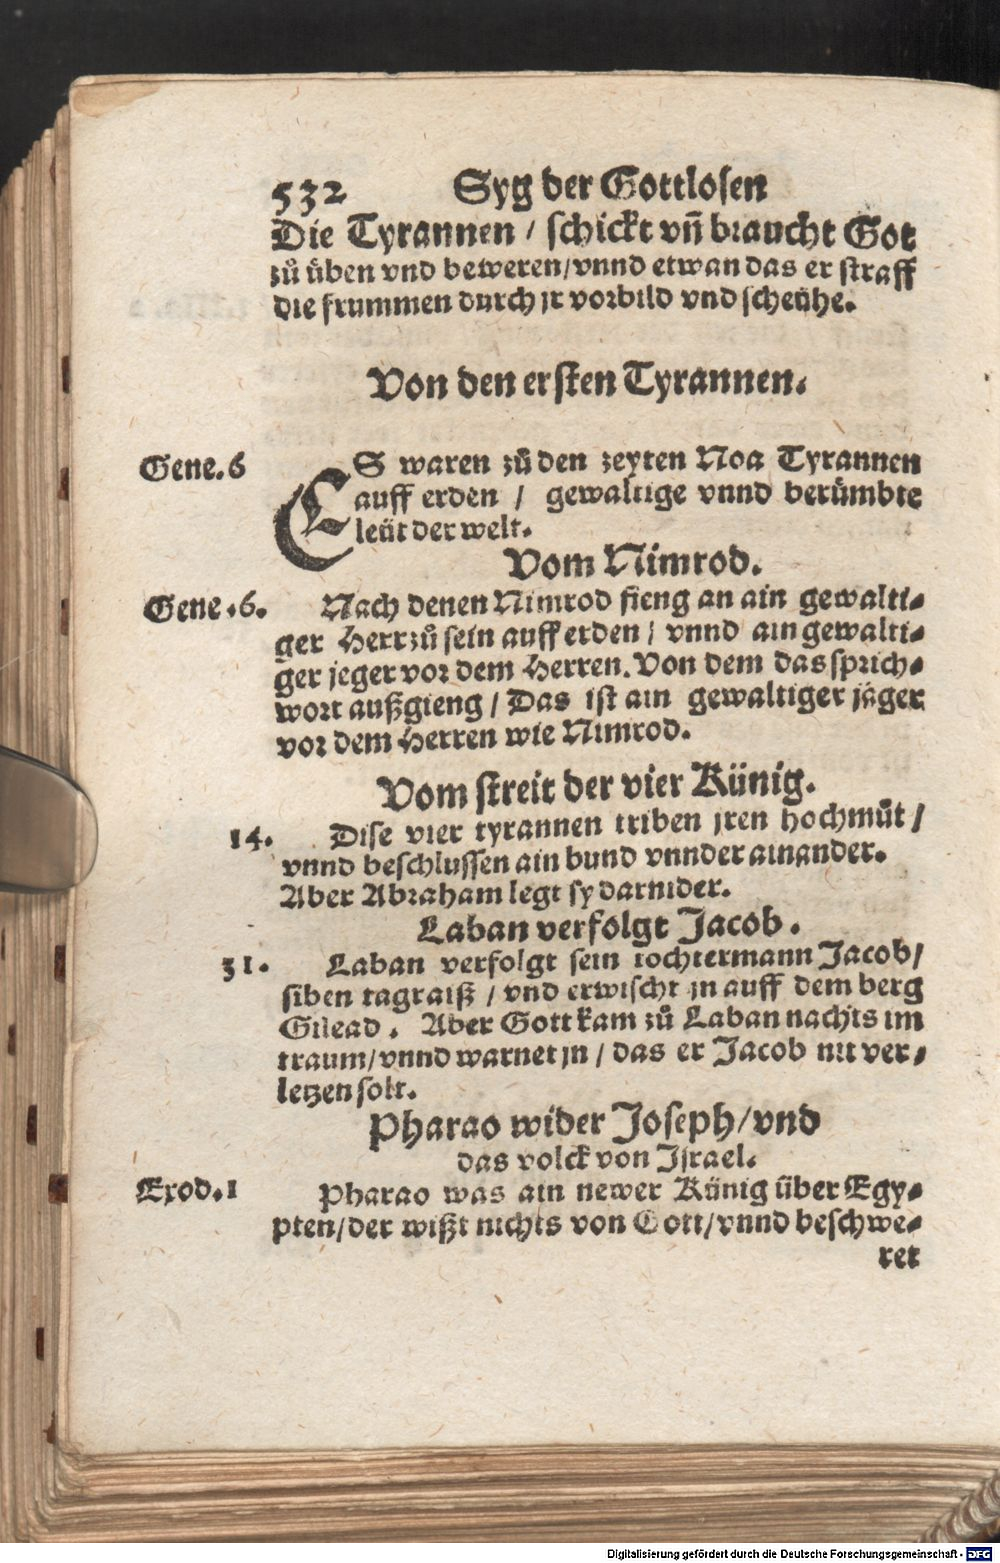 532 Syg der Gottlosen
Die Tyrannen / schickt vñ braucht Got
zů üben vnd beweren/vnnd etwan das er straff
die frummen durch jr vorbild vnd scheühe.
Von den ersten Tyrannen.
Gene. 6 ES waren zů den zeyten Noa Tyrannen
auff erden / gewaltige vnnd berůmbte
leüt der welt.
Vom Nimrod.
Gene .6. Nach denen Nimrod fieng an ain gewalti-
ger Herr zů sein auff erden / vnnd ain gewalti-
ger jeger vor dem Herren. Von dem das sprich-
wort außgieng / Das ist ain gewaltiger jäger
vor dem Herren wie Nimrod.
Vom streit der vier Künig.
14. Dise vier tyrannen triben jren hochmůt /
vnnd beschlussen ain bund vnnder ainander.
Aber Abraham legt sy darnider.
Laban verfolgt Jacob .
31. Laban verfolgt sein tochtermann Jacob/
siben tagraiß / vnd erwischt jn auff dem berg
Gilead . Aber Gott kam zů Laban nachts im
traum/vnnd warnet jn / das er Jacob nit ver-
letzen solt.
Pharao wider Joseph/vnd
das volck von Israel.
Exod. 1 Pharao was ain newer Künig über Egy-
pten/der wißt nichts von Gott/vnnd beschwe-
ret
Digitalisierung gefördert durch die Deutsche Forschungsgemeinschaft - DFG